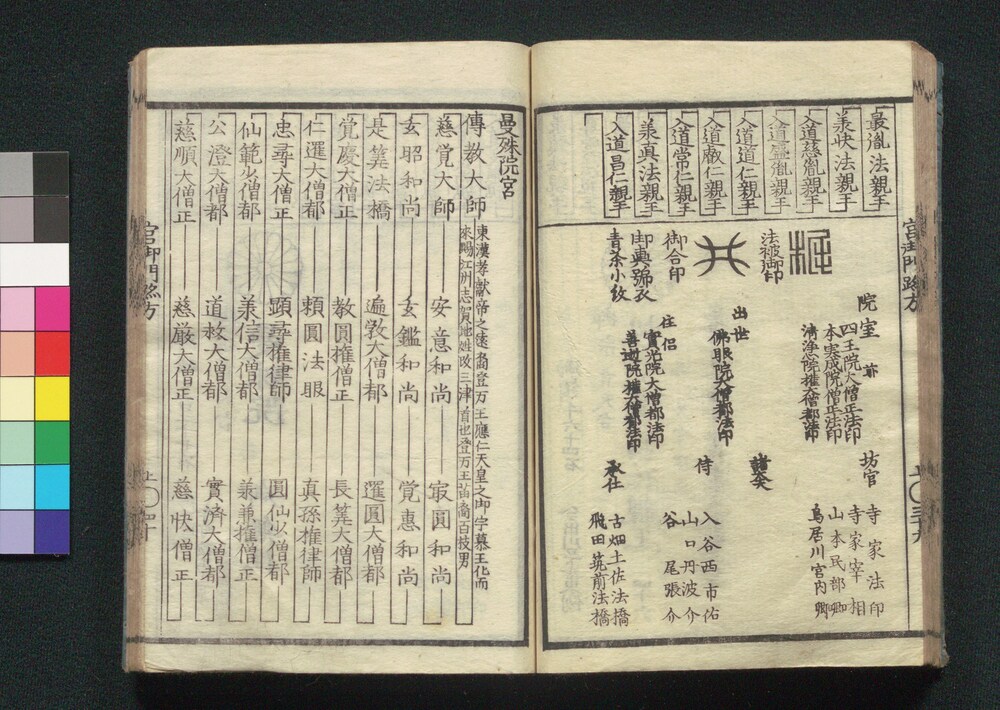 最胤法親王
尭恕法親王
入道慈胤親王
入道盛胤親王
入道道仁親王
入道常仁親王
尭真法親王
入道昌仁親王
法被御印
御合印
御輿舁衣
青茶小紋
院室
四王院大僧正法印
本実成院僧正法印
清浄院権大僧都法印
出世
佛眼院大僧都法印
住侶
實光院大僧都法印
坊官
寺家法印
寺家宰相
山本民部卿
鳥居川宮内卿
諸大夫
侍
入谷西市佑
山口丹波介
谷尾張介
承仕
古畑土佐法橋
飛田筑前法橋
宮御門跡方
上〇三十九
曼殊院宮
傳教大師
東漢孝献帝之遠裔登万王應仁天皇之御字慕王化而
来賜江州志賀地姓改三津首也登万王苗裔百枝男
慈覚大師 安意和尚 寂圓和尚
玄昭和尚 玄鑑和尚 覚惠和尚
是算法橋 遍斅大僧都 暹圓大僧都
覚慶大僧正 教圓権僧正 長算大僧都
仁暹大僧都 頼圓法眼 真孫権律師
忠尋大僧正 顕尋権律師 圓仙少僧都
仙範少僧都 兼信大僧都 兼権僧正
公澄大僧都 道救大僧都 實済大僧都
慈順大僧正 慈厳大僧正 慈快僧正
宮御門跡方
上〇四十